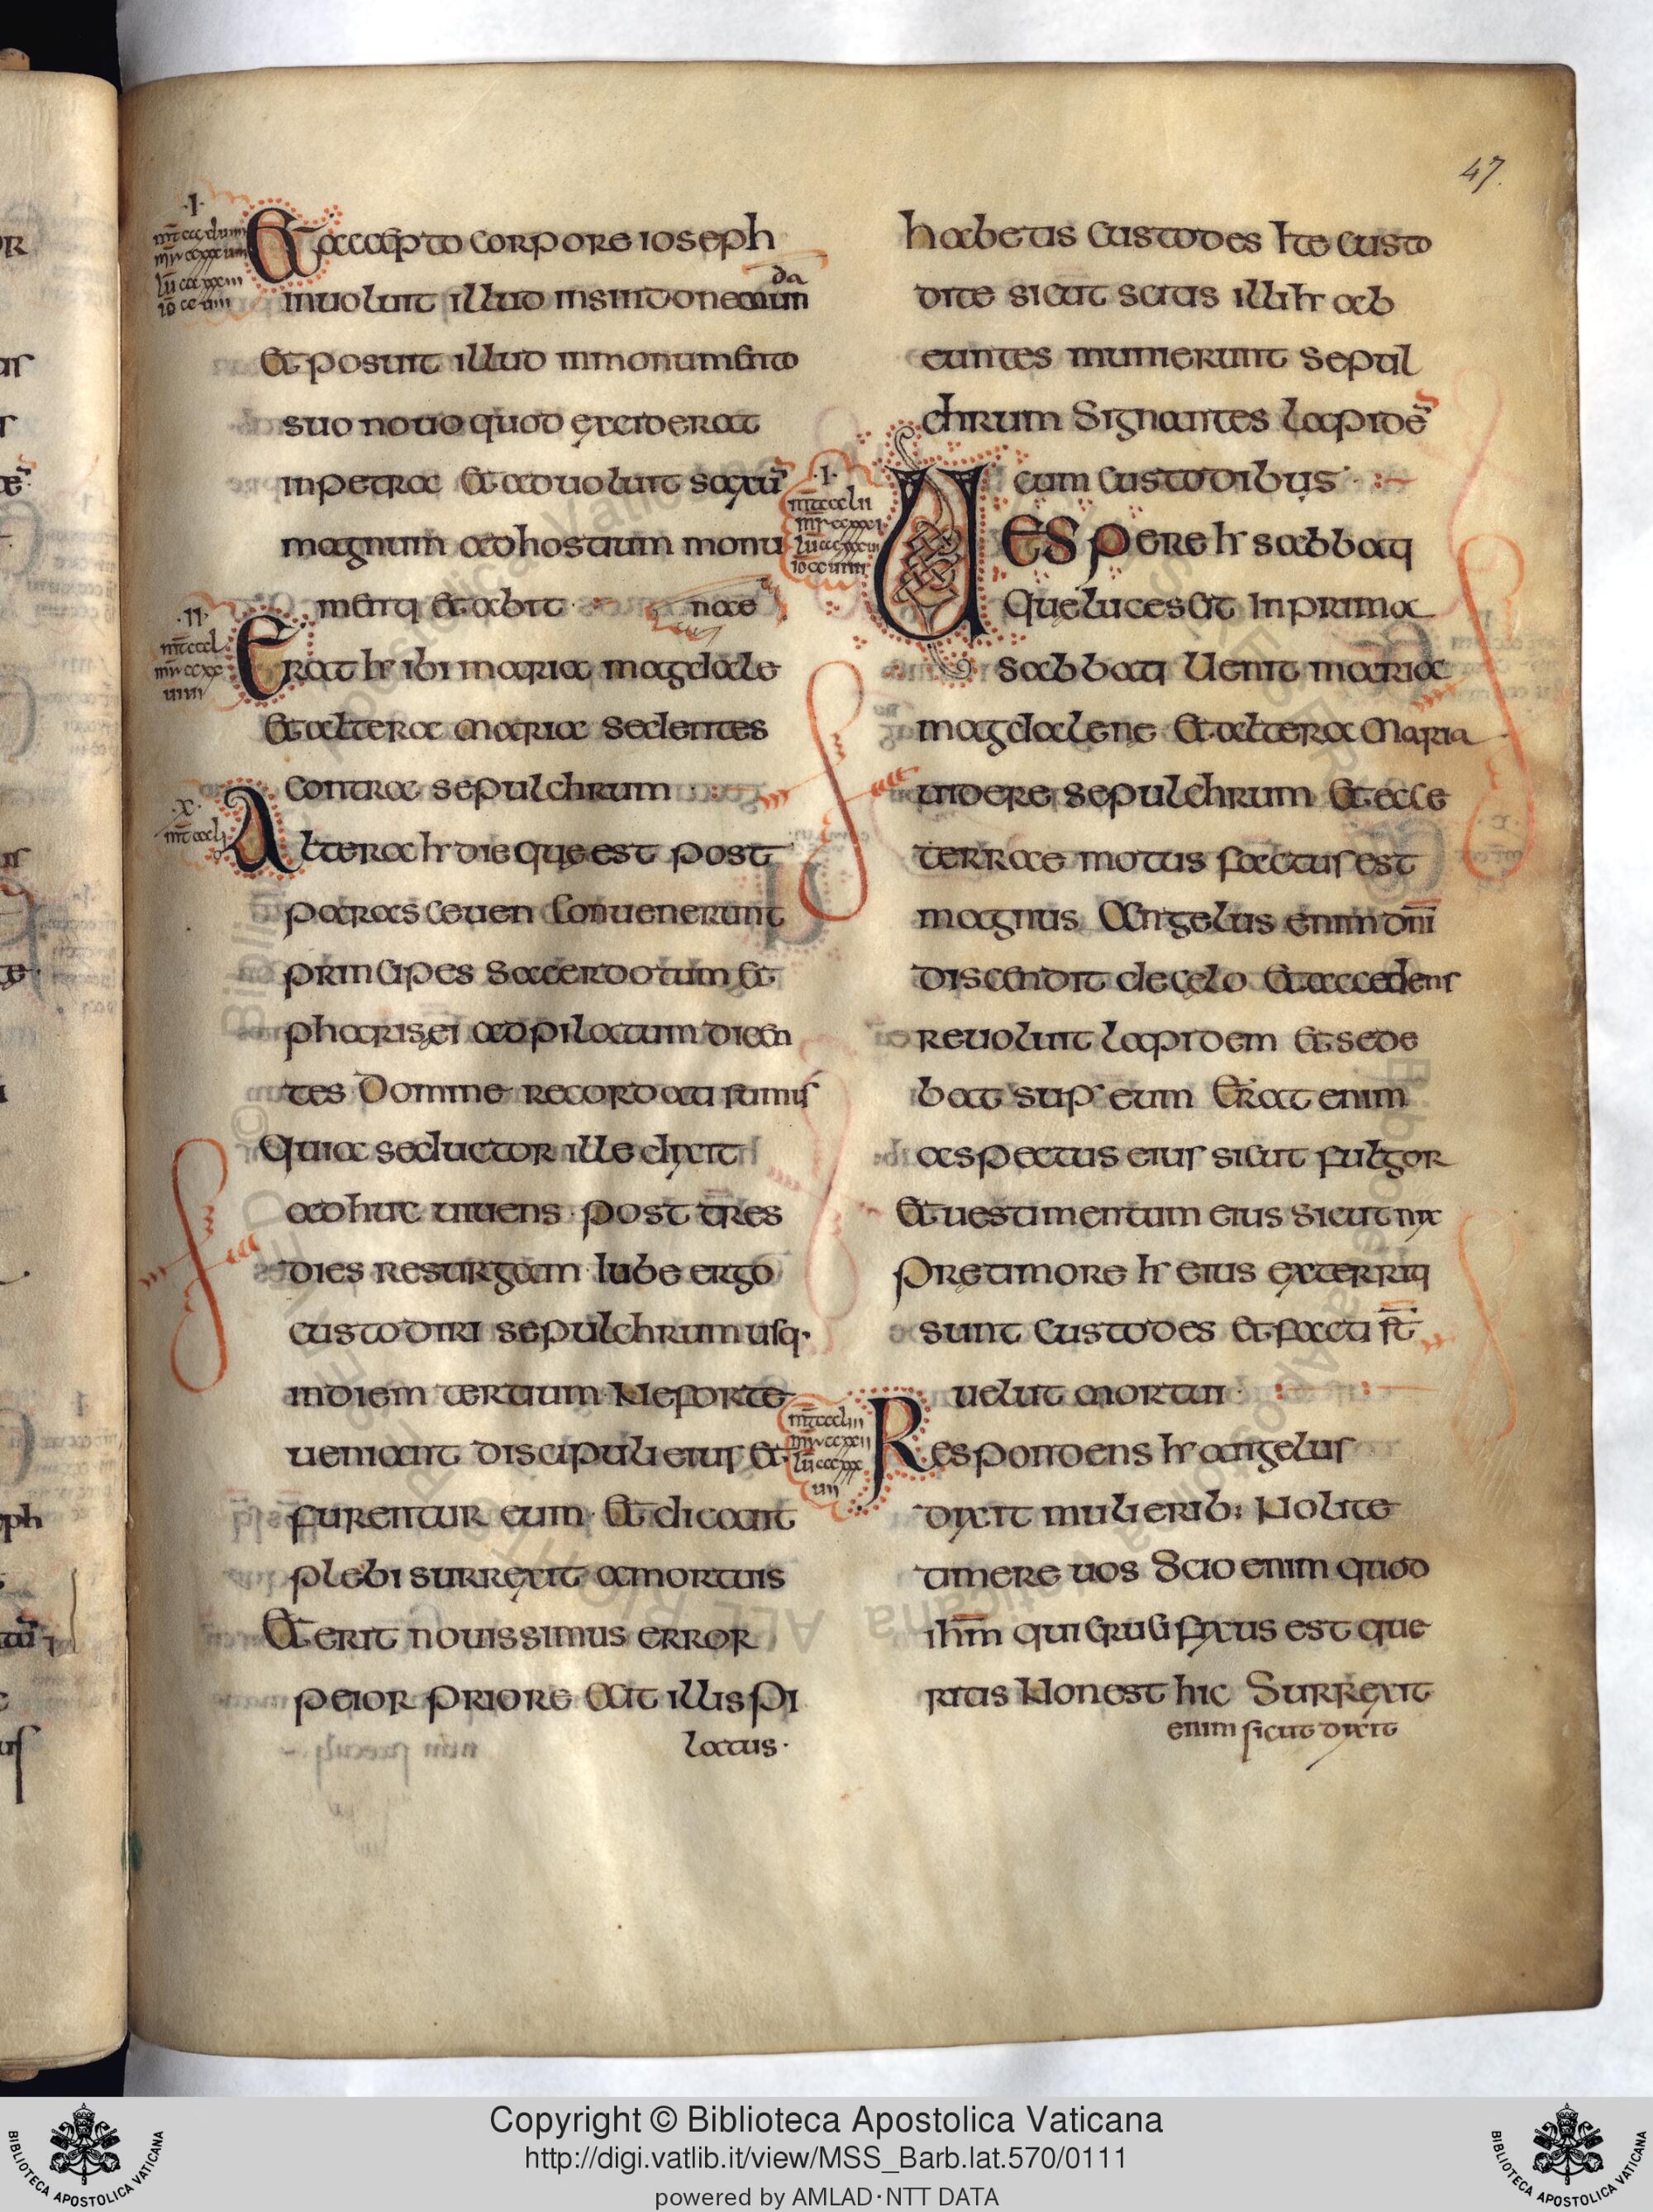 47.
·I·
Et accepto corpore ioseph
inuoluit illud insindone mun
da
Et posuit illud inmonumento
suo nouo quod exciderat
inpetra Et aduoluit saxū
magnum adhostium monu
menti et abiit
·II·
nae
Erat hr ibi maria magdale
Et altera maria sedentes
contra sepulchrum
·x·
mt cccli
Altera hr die que est post
parasceuen Conuenerunt
principes sacerdotum et
pharisei adpilatum dicen
tes Domine recordati sumus
Quia seductor ille dixit
adhuc uiuens post tres
dies resurgam Iube ergo
custodiri sepulchrum usq·
indiem tertium Neforte
ueniant discipuli eius et
furentur eum· Et dicant
plebi surrexit amortuis
Et erit nouissimus error
peior priore Ait illis pi
latus·
habetis custodes Ite custo
dite sicut scitis illi hr ab
euntes munierunt sepul
chrum Signantes lapidē
cum custodibus
·I·
mt ccclii
Uespere hr sabbati
Que lucescit Inprima
sabbati Uenit maria
magdalene Et altera Maria
uidere sepulchrum Et ecce
terrae motus factus est
magnus Angelus enim dnī
discendit de celo Et accedens
reuoluit lapidem Et sede
bat sup eum Erat enim
aspectus eius sicut fulgor
Et uestimentum eius sicut nix
Pre timore hr eius exterriti
sunt Custodes Et facti st̄
uelut mortui
mt cccliii
Respondens hr angelus
dixit mulierib: Nolite
timere uos Scio enim quod
ihm̄ qui crucifixus est que
ritis Nonest hic Surrexit
enim sicut dixit
Copyright © Biblioteca Apostolica Vaticana
http://digi.vatlib.it/view/MSS_Barb.lat.570/0111
powered by AMLAD·NTT DATA
BIBLIOTECA APOSTOLICA VATICANA
BIBLIOTECA APOSTOLICA VATICANA